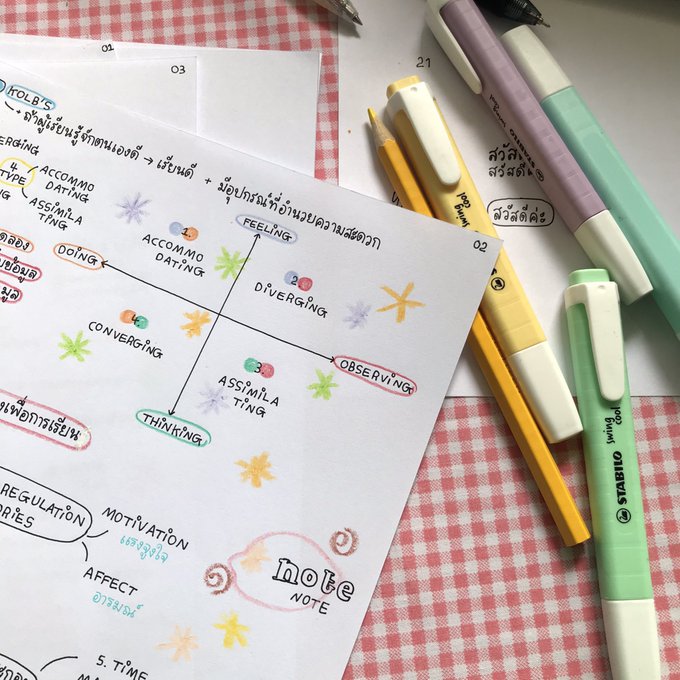 01
03
21
KOLB'S
→ ถ้าผู้เรียนรู้จักตนเองดี → เรียนดี + มีอุปกรณ์ที่อำนวยความสะดวก
02
4
TYPE
ACCOMMO
DATING
ASSIMILA
TING
FEELING
1
ACCOMMO
DATING
2
DIVERGING
DOING
4
CONVERGING
OBSERVING
3
ASSIMILA
TING
THINKING
เพื่อการเรียน
REGULATION
MOTIVATION
แรงจูงใจ
AFFECT
อารมณ์
note
NOTE
5. TIME
สวัสดีค่ะ
swing cool
STABILO
swing cool
STABILO
swing cool